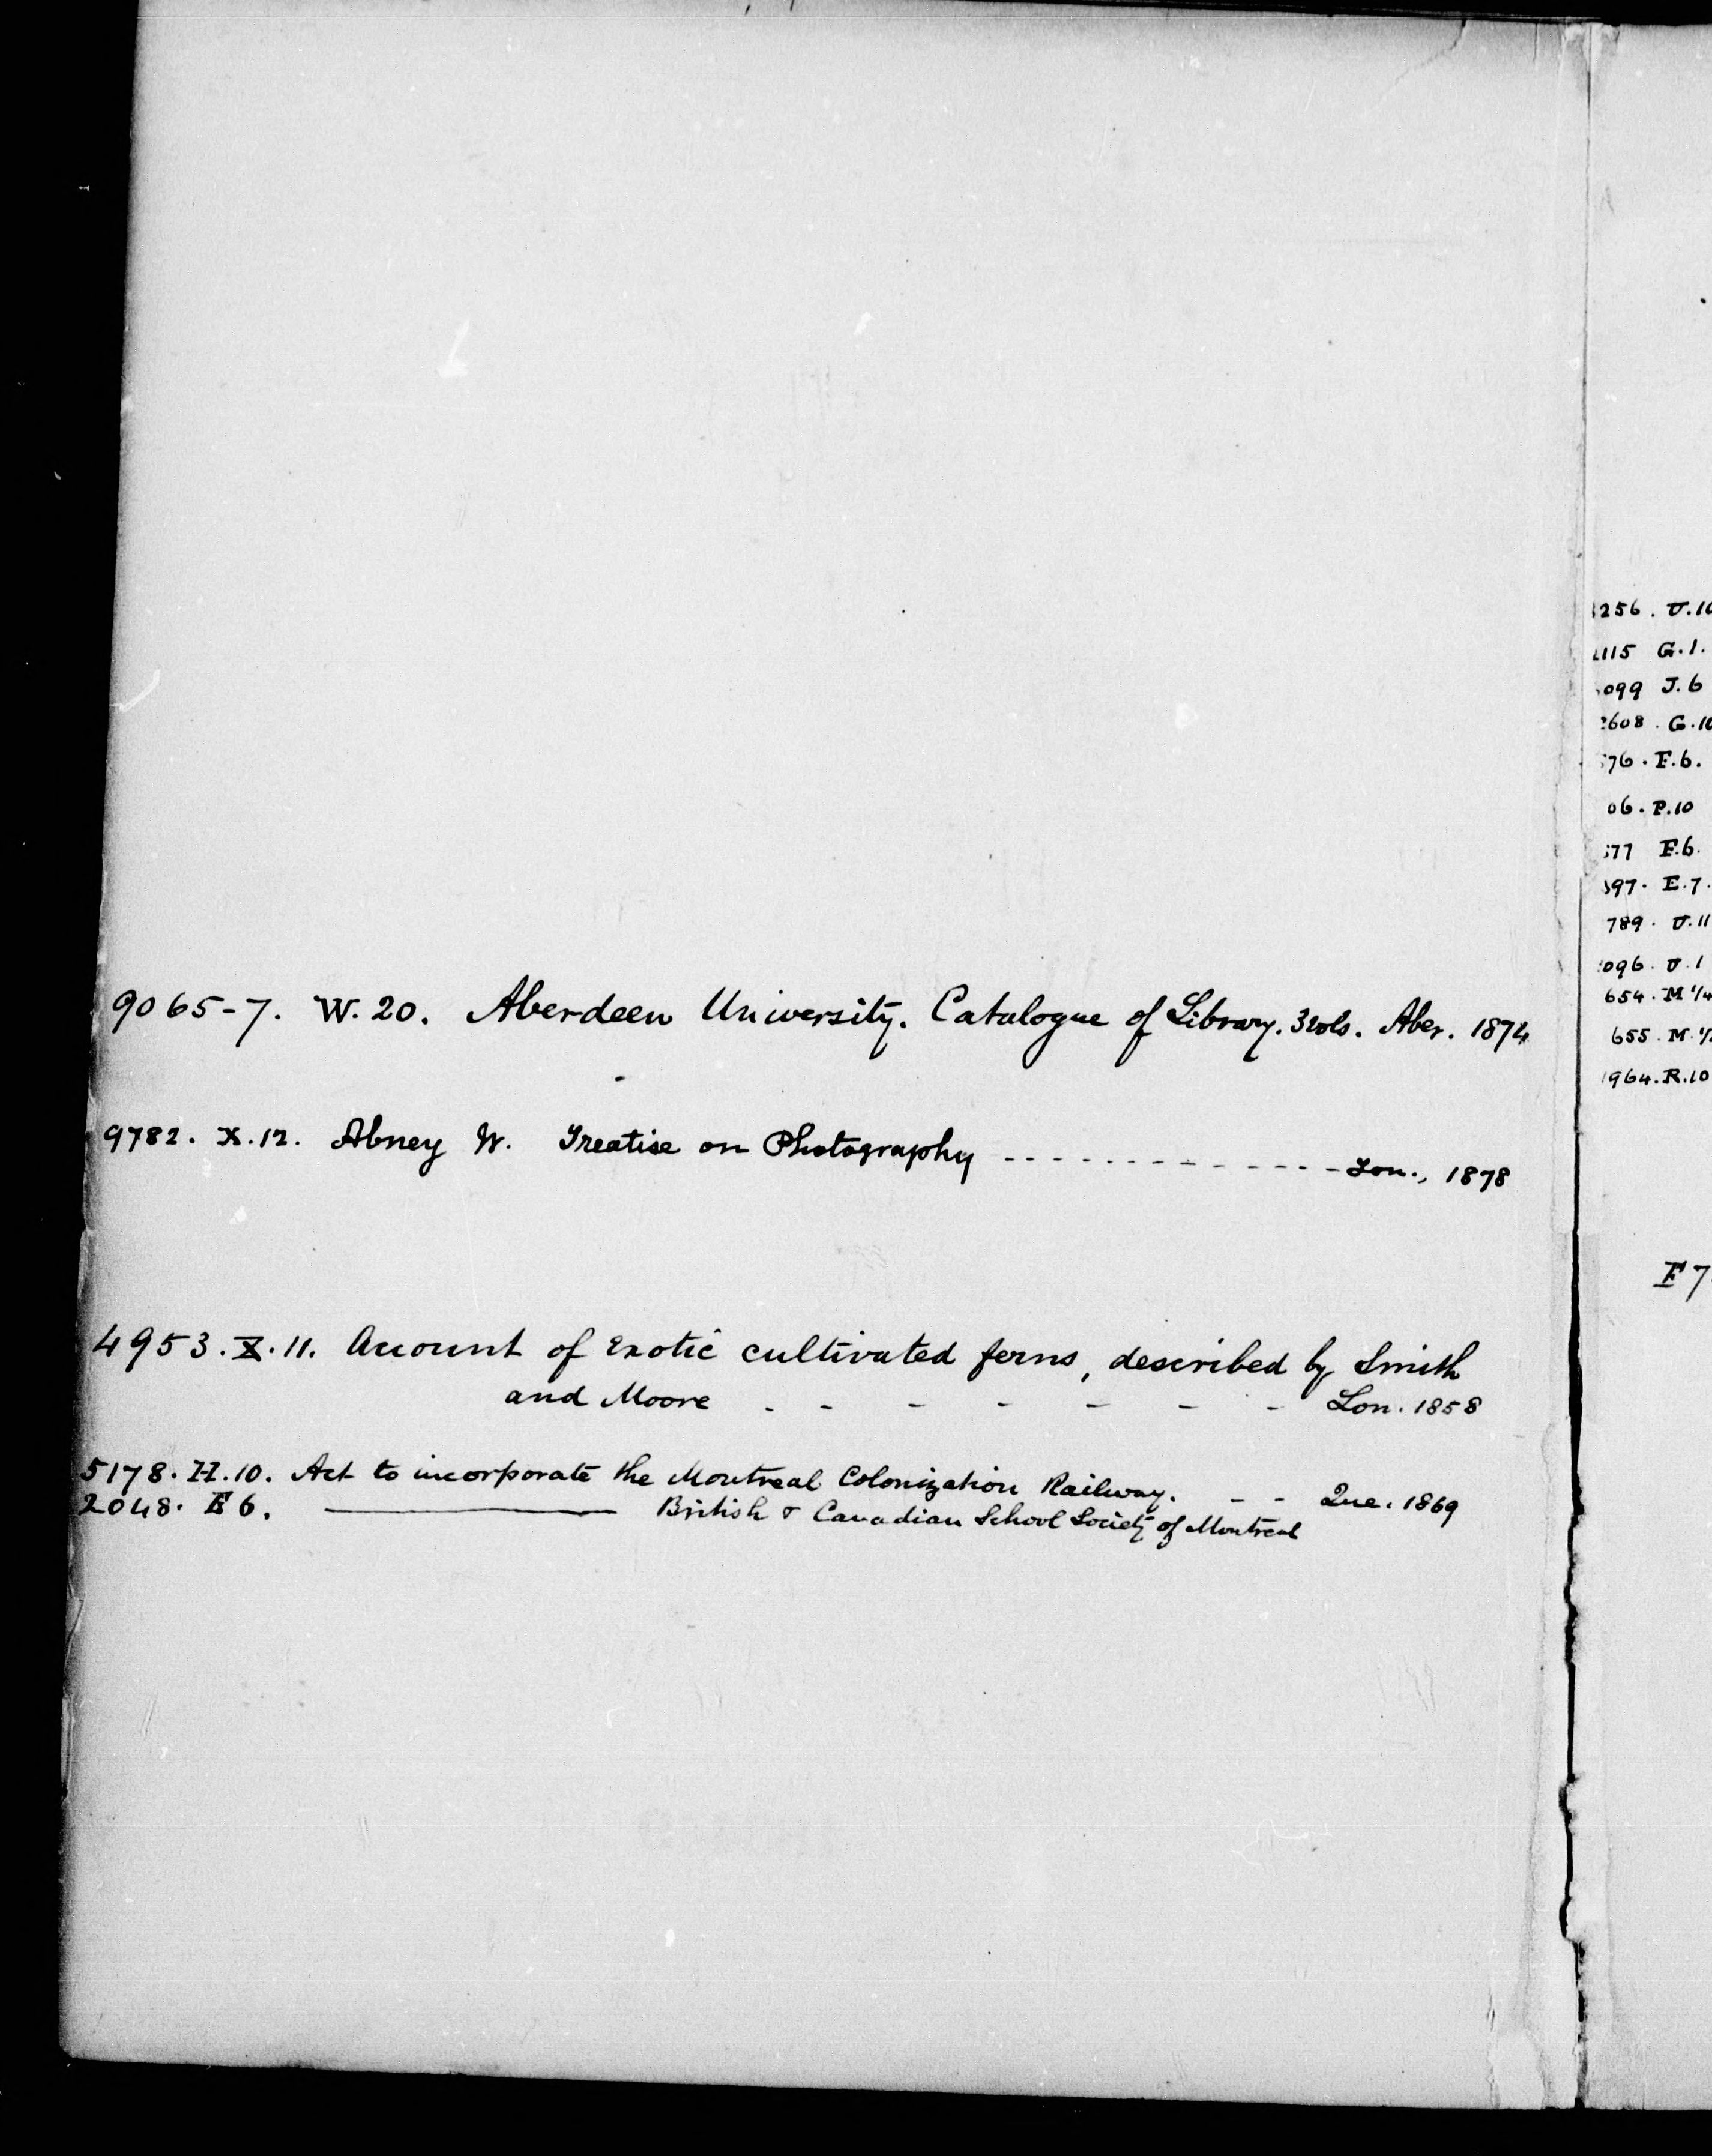 9065-7. W.20. Aberdeen University. Catalogue of Library. 3 vols. Aber. 1874
9782. X.12. Abney W. Treatise on Photography - - - - - - - - - - - - - Lon., 1878
4953. X.11. Account of Exotic cultivated ferns, described by Smith
and Moore - - - - - - - Lon. 1858
5178. H.10. Act to incorporate the Montreal Colonization Railway. - - Que. 1869
2048. E 6. ——— British & Canadian School Society of Montreal
256. U.10
115 G.1.
099 J.6
608. G.10
76. F.6.
06. P.10
77 F.6.
97. E.7.
789. U.11
096. U.1
654. M 1/4
655. M. 1/
964. R.10
F 7